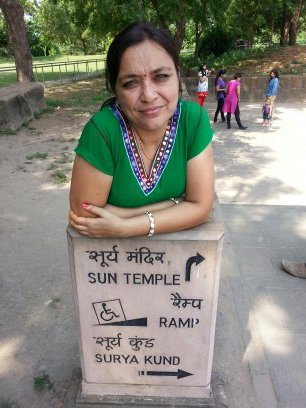 सूर्य मंदिर
SUN TEMPLE
रैम्प
RAMP
सूर्य कुंड
SURYA KUND